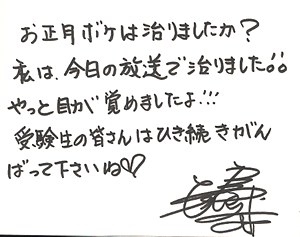 お正月ボケは治りましたか?
私は、今日の放送で治りました!!
やっと目が覚めましたよ!!!
受験生の皆さんはひき続きがん
ばって下さいね♡